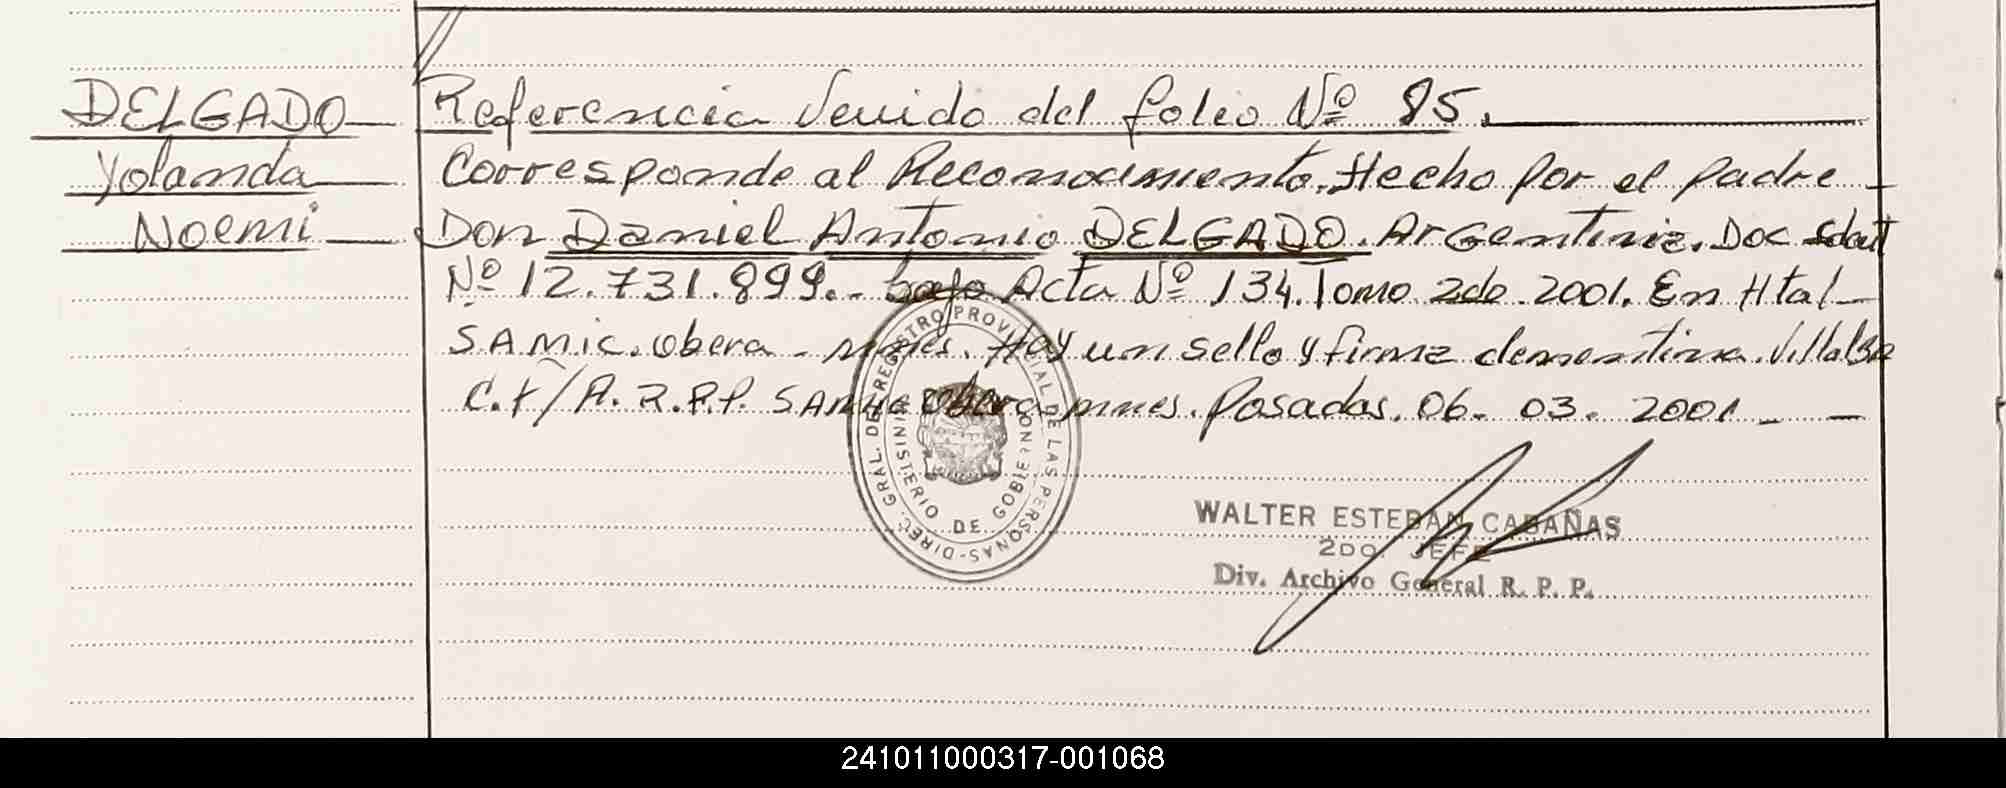 DELGADO
Yolanda
Noemi
Referencia Venido del folio Nº 85.
Corresponde al Reconocimiento. Hecho por el padre
Don Daniel Antonio DELGADO. Argentina. Doc Idant
Nº 12.731.899.- bajo Acta Nº 134. Tomo 2do. 2001. En Htal
SAMIC. obera - mnes. Hay un sello y firma clementina. Villalba
C.f/A. R.P.P. SAMIC Obera mnes. Posadas. 06. 03. 2001
DIREC. GRAL. DEL REGISTRO PROVINCIAL DE LAS PERSONAS
MINISTERIO DE GOBIERNO
WALTER ESTEBAN CABAÑAS
2DO. JEFE
Div. Archivo General R. P. P.
241011000317-001068